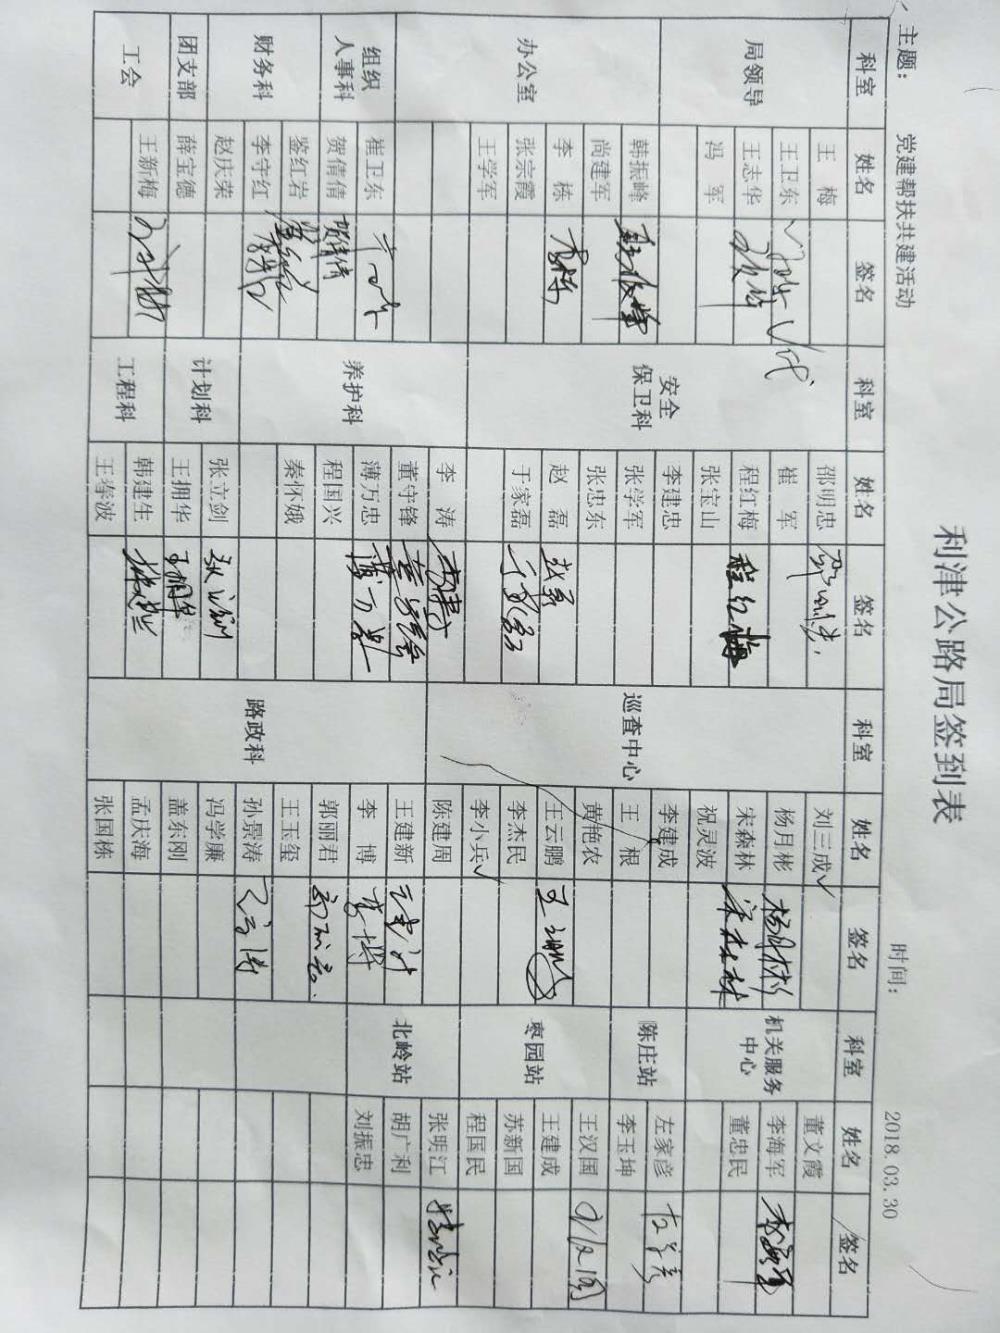 利津公路局签到表
主题： 党建帮扶共建活动 时间： 2018.03.30
科室 姓名 签名 科室 姓名 签名 科室 姓名 签名 科室 姓名 签名
局领导 王梅 安全保卫科 邵明忠 巡查中心 刘三成✓ 机关服务中心 董文霞
王卫东 崔军 杨月彬 杨月彬 李海军 李海军
王志华 程红梅 程红梅 宋森林 宋森林 董忠民
冯军 张宝山 祝灵波
办公室 韩振峰 韩振峰 李建忠 李建成 陈庄站 左家彦 左家彦
尚建军 张学军 王根 李玉坤
李栋 李栋 张忠东 黄艳农 枣园站 王汉国
张宗霞 赵磊 赵磊 王云鹏 王建成
王学军 于家磊 于家磊 李杰民 苏新国
养护科 李涛 李涛 李小兵✓ 程国民
组织人事科 崔卫东 董守锋 路政科 陈建周 北岭站 张明江
贺倩倩 贺倩倩 薄万忠 王建新 胡广利
财务科 鉴红岩 程国兴 李博 李博 刘振忠
李守红 秦怀娥 郭丽君
赵庆荣 计划科 张立剑 王玉玺
团支部 薛宝德 王拥华 王拥华 孙景涛
工会 王新梅 工程科 韩建生 冯学廉
王琫波 盖东刚
孟庆海
张国栋